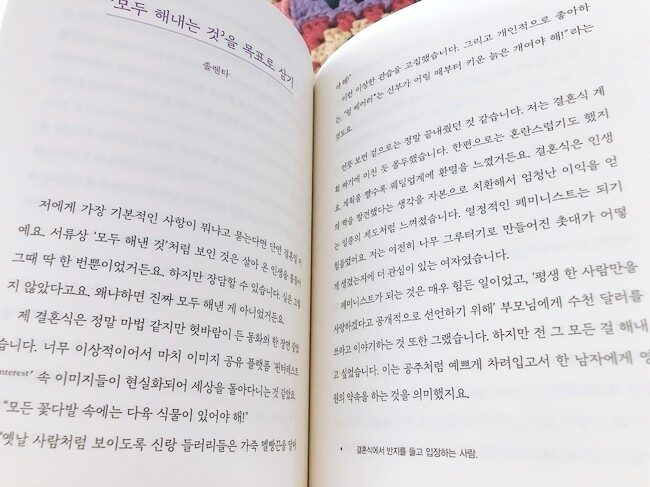 ‘모두 해내는 것’을 목표로 삼기
졸렌타
저에게 가장 기본적인 사항이 뭐냐고 묻는다면 단연 결혼
예요. 서류상 ‘모두 해낸 것’처럼 보인 것은 살아 온 인생을 통틀어
그때 딱 한 번뿐이었거든요. 하지만 장담할 수 있습니다. 실은 그렇
지 않았다고요. 왜냐하면 진짜 모두 해낸 게 아니었거든요.
제 결혼식은 정말 마법 같지만 헛바람이 든 동화의 한 장면 같았
습니다. 너무 이상적이어서 마치 이미지 공유 플랫폼 ‘핀터레스트
interest’ 속 이미지들이 현실화되어 세상을 돌아다니는 것 같았
“모든 꽃다발 속에는 다육 식물이 있어야 해!”
“옛날 사람처럼 보이도록 신랑 들러리들은 가죽 멜빵끈을 달아
야 해!”
이런 이상한 관습을 고집했습니다. 그리고 개인적으로 좋아하
는 “링 베어러*는 신부가 어릴 때부터 키운 늙은 개여야 해!” 라는
것도요.
언뜻 보면 겉으로는 정말 끝내줬던 것 같습니다. 저는 결혼식 계
획 짜기에 미친 듯 몰두했습니다. 한편으로는 혼란스럽기도 했지
요. 계획을 짤수록 웨딩업계에 환멸을 느꼈거든요. 결혼식은 인생
의 짝을 발견했다는 생각을 자본으로 치환해서 엄청난 이익을 얻
는 일종의 제도처럼 느껴졌습니다. 열정적인 페미니스트는 되기
힘들었어요. 저는 여전히 나무 그루터기로 만들어진 촛대가 어떻
게 생겼는지에 더 관심이 있는 여자였습니다.
페미니스트가 되는 것은 매우 힘든 일이었고, ‘평생 한 사람만을
사랑하겠다고 공개적으로 선언하기 위해’ 부모님에게 수천 달러를
쓰라고 이야기하는 것 또한 그랬습니다. 하지만 전 그 모든 걸 해내
고 싶었습니다. 이는 공주처럼 예쁘게 차려입고서 한 남자에게 영
원의 약속을 하는 것을 의미했지요.
* 결혼식에서 반지를 들고 입장하는 사람.